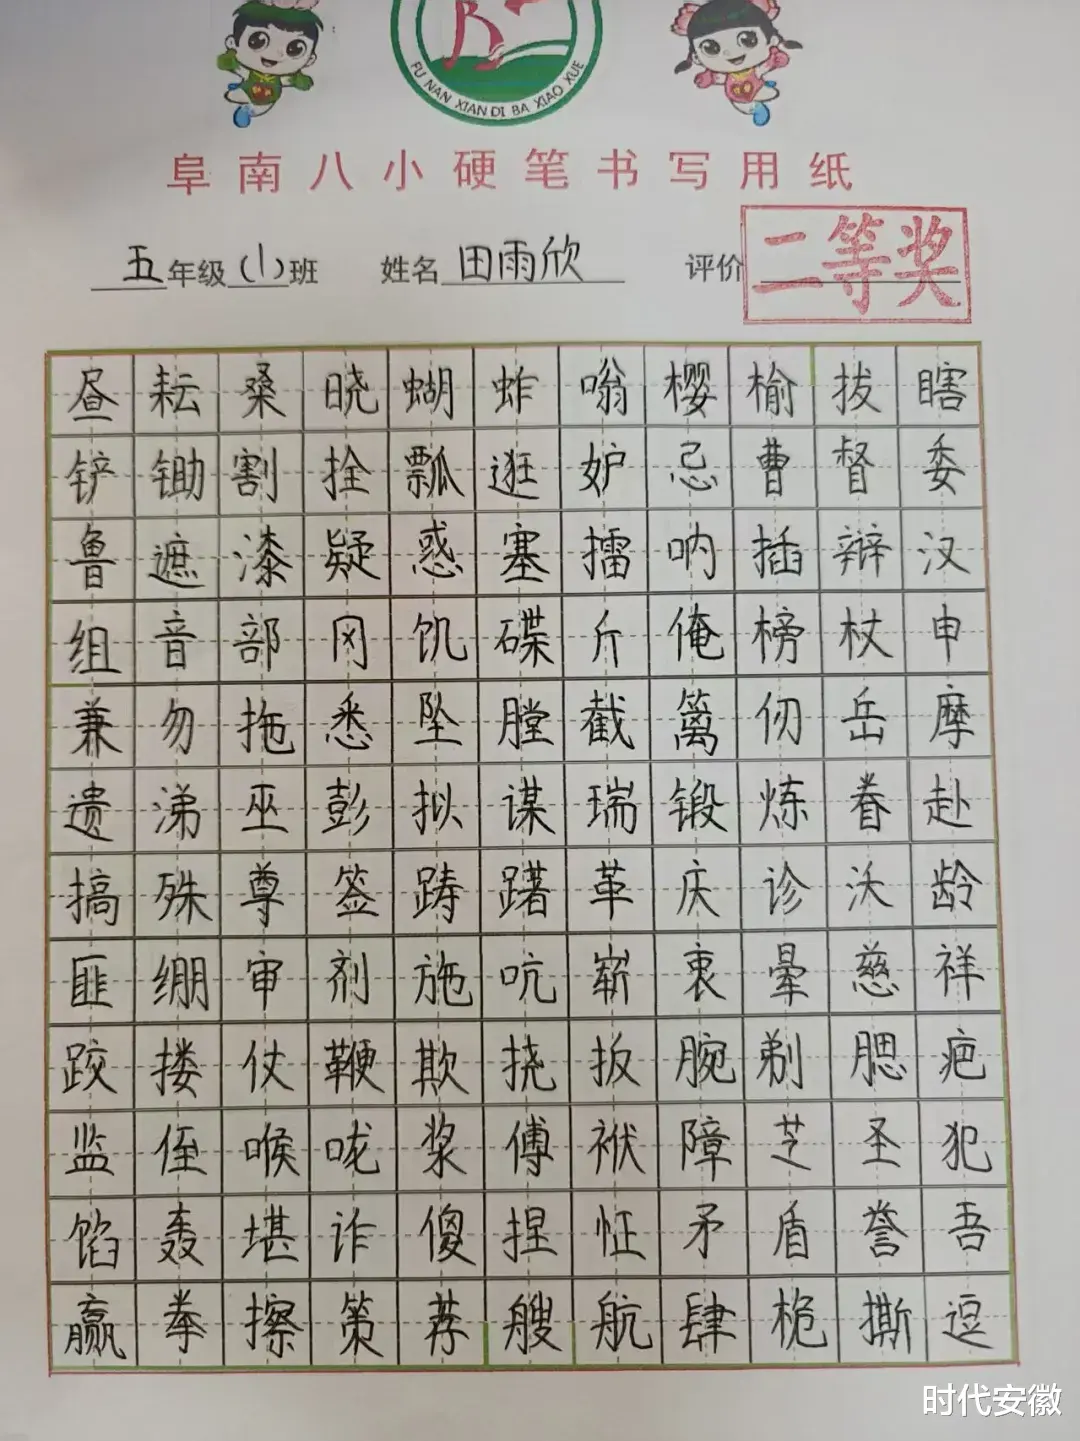 FU NAN XIAN DI BA XIAO XUE
阜南八小硬笔书写用纸
五年级(1)班 姓名 田雨欣 评价 二等奖
昼耘桑晓蝴蚱嗡樱榆拔瞎
铲锄割拴瓢逛妒忌曹督委
鲁遮漆疑惑塞擂呐插辩汉
组音部冈饥碟斤俺榜杖申
兼勿拖悉坠膛截篱仞岳摩
遗涕巫彭拟谋瑞锻炼眷赴
搞殊尊签踌躇革庆诊沃龄
匪绷审剂施吭崭衷晕慈祥
跤搂仗鞭欺挠扳腕剃腮疤
监侄喉咙浆傅袱障芝圣犯
馅轰堪诈傻捏怔矛盾誉吾
赢拳擦策荐艘航肆桅撕逗
时代安徽